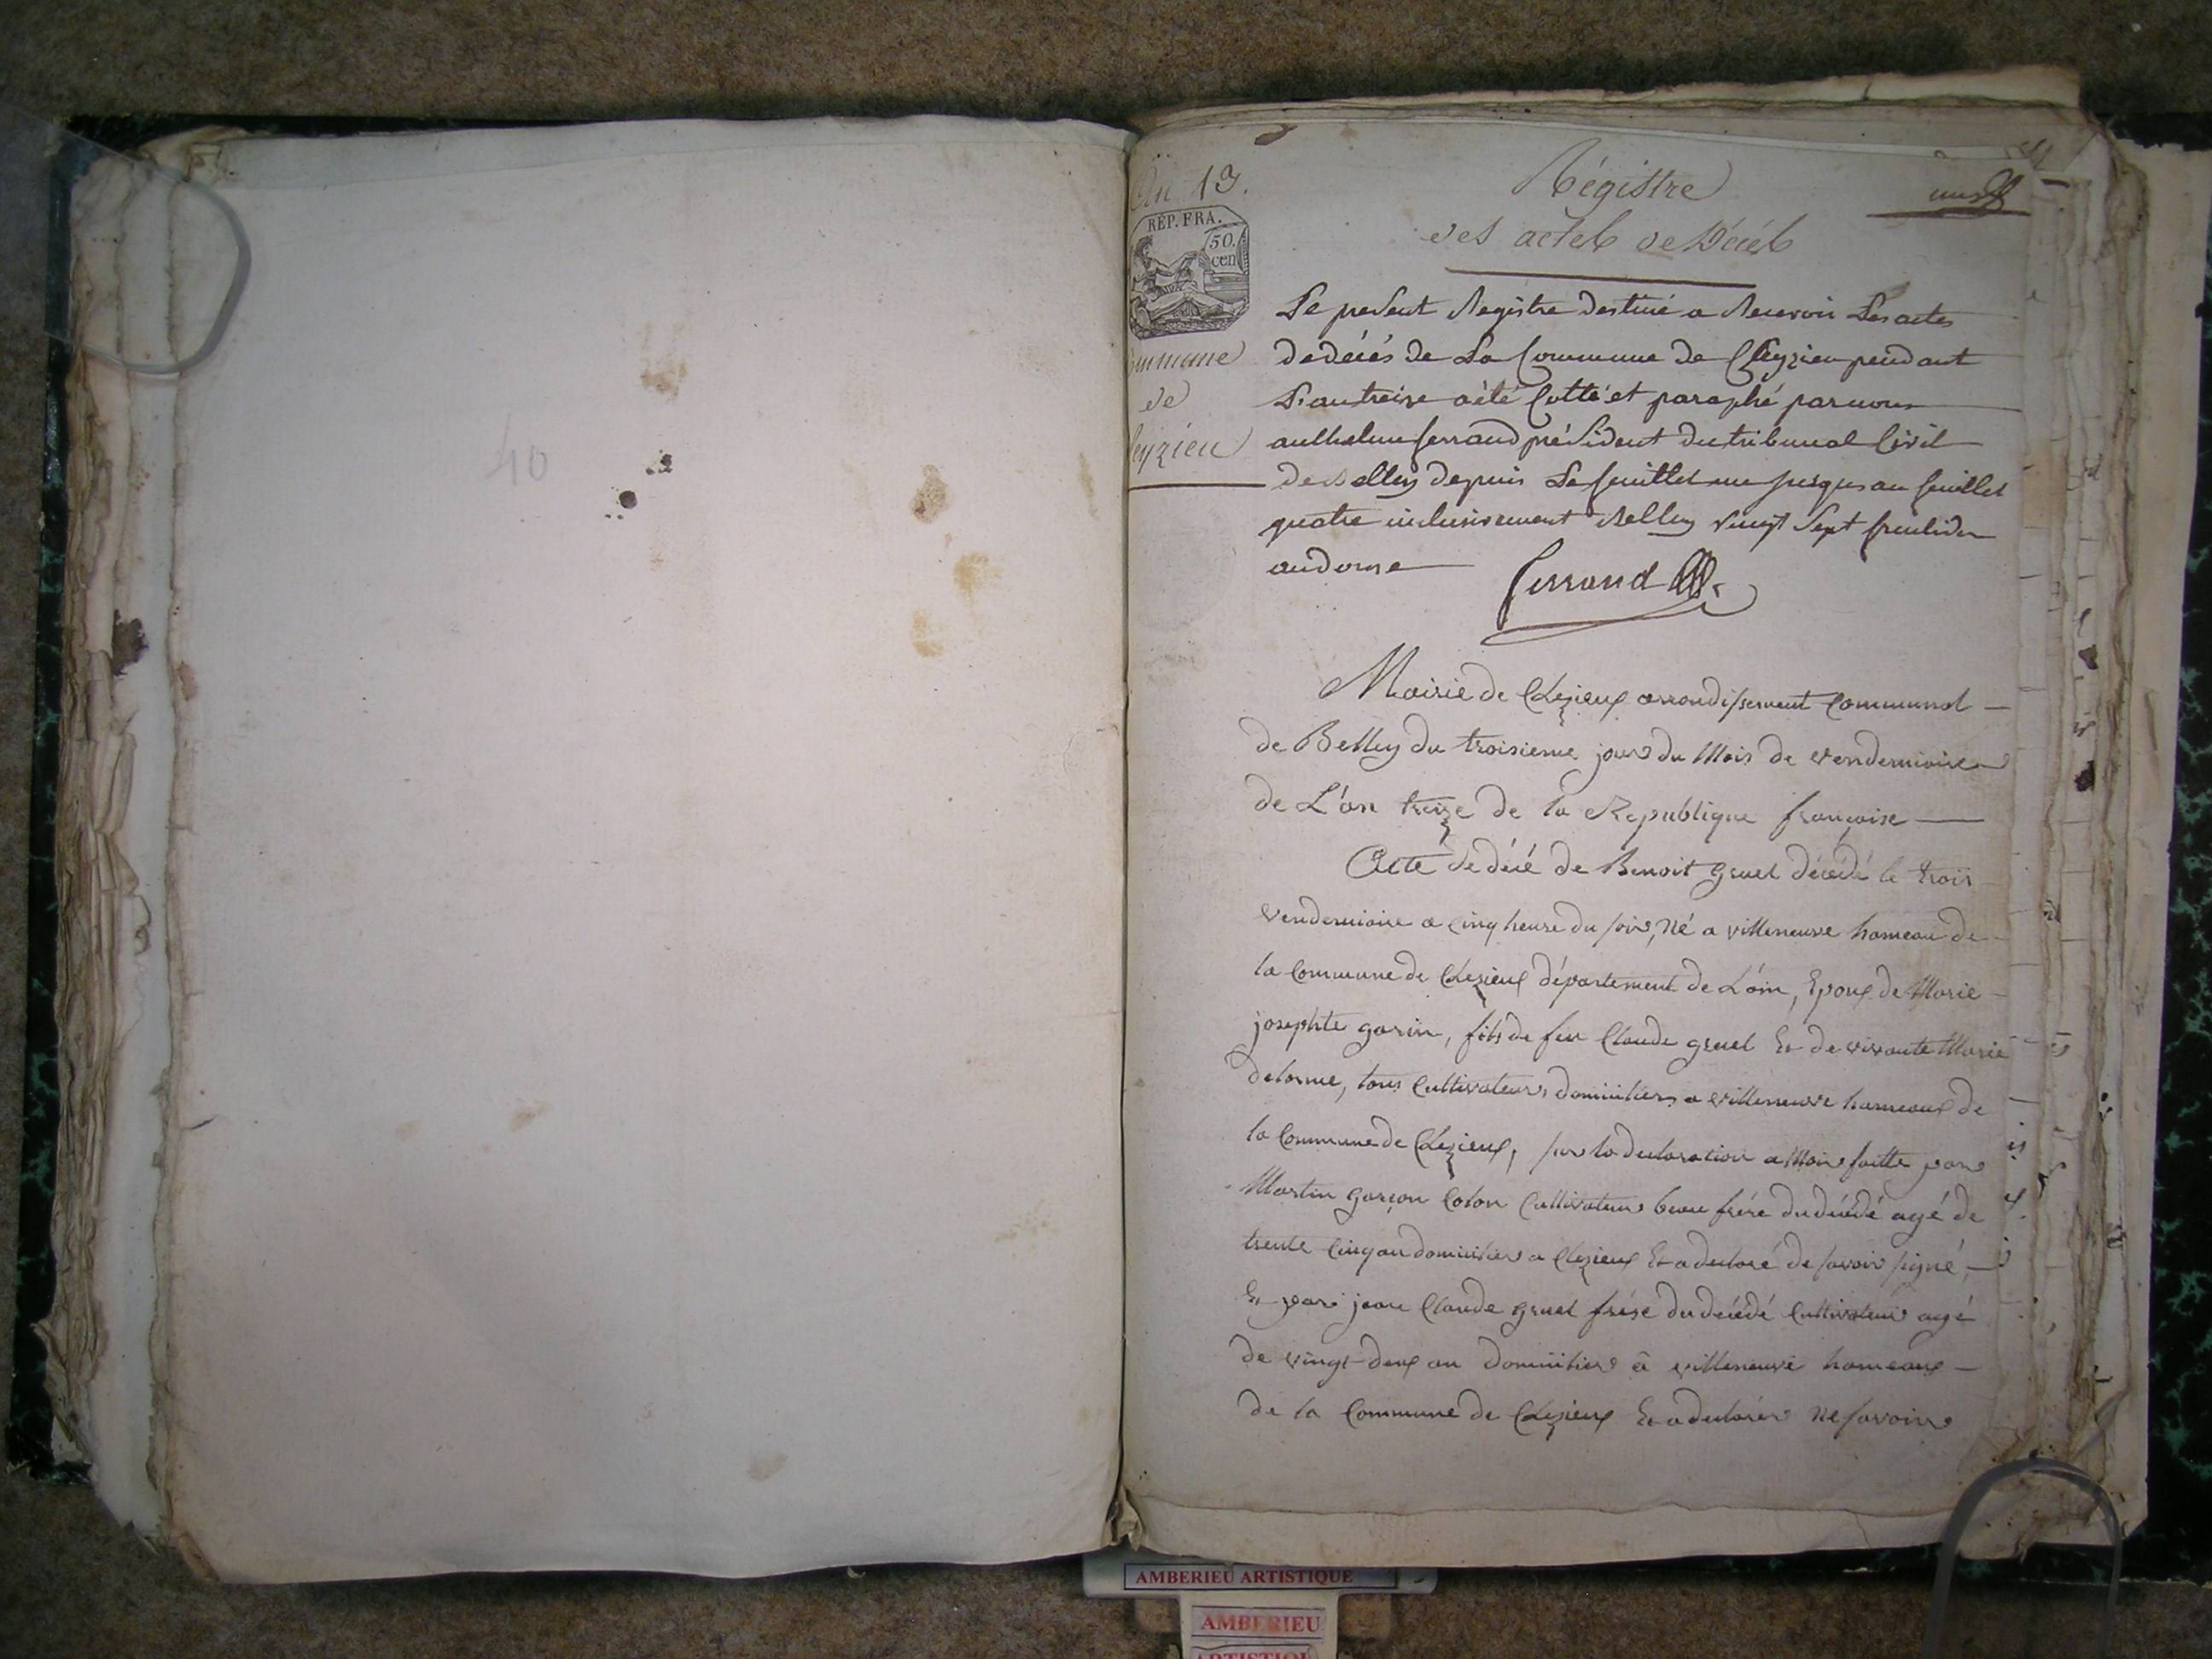 40
An 13.
RÉP. FRA.
50.
cen
ommune
de
leyzieu
Régistre
des actes de Décés
une
Le present Registre destiné a Recevoir Les actes
de décés de La Commune de Cleyzieu pendant
L'an treize a été Cotté et paraphé par nous
anthelme ferrand président du tribunal Civil
de Belley depuis Le feuillet une jusques au feuillet
quatre inclusivement Belley vingt Sept fructidor
an douze
ferrand
Mairie de Clezieux arrondissement Communal
de Belley du troisieme jour du Mois de vendemiaire
de L'an treize de la Republique françoise
Acte de décé de Benoit gruel décédé le trois
vendemiaire a cinq heure du soir, né a villeneuve hameau de
la Commune de Clezieux département de L'ain, Epoux de Marie
josephte garin, fils de feu Claude gruel Et de vivante Marie
delorme, tous Cultivateurs domicilies a villeneuve hameaux de
la Commune de Clezieux, sur la declaration a Moi faitte par
Martin garçon Colon Cultivateur beau frére du décédé agé de
trente Cinq an domicilier a Clezieux Et a declaré de savoir signé,
Et par jean Claude gruel frére du décédé Cultivateur agé
de vingt-deux an domicilier â villeneuve hameaux
de la Commune de Clezieux Et a declarér ne savoir
AMBERIEU ARTISTIQUE
AMBERIEU
ARTISTIQUE